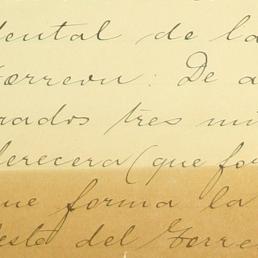 dental de la
Torreon: De a
rados tres mi
derecera (que for
que forma la
esta del Torre